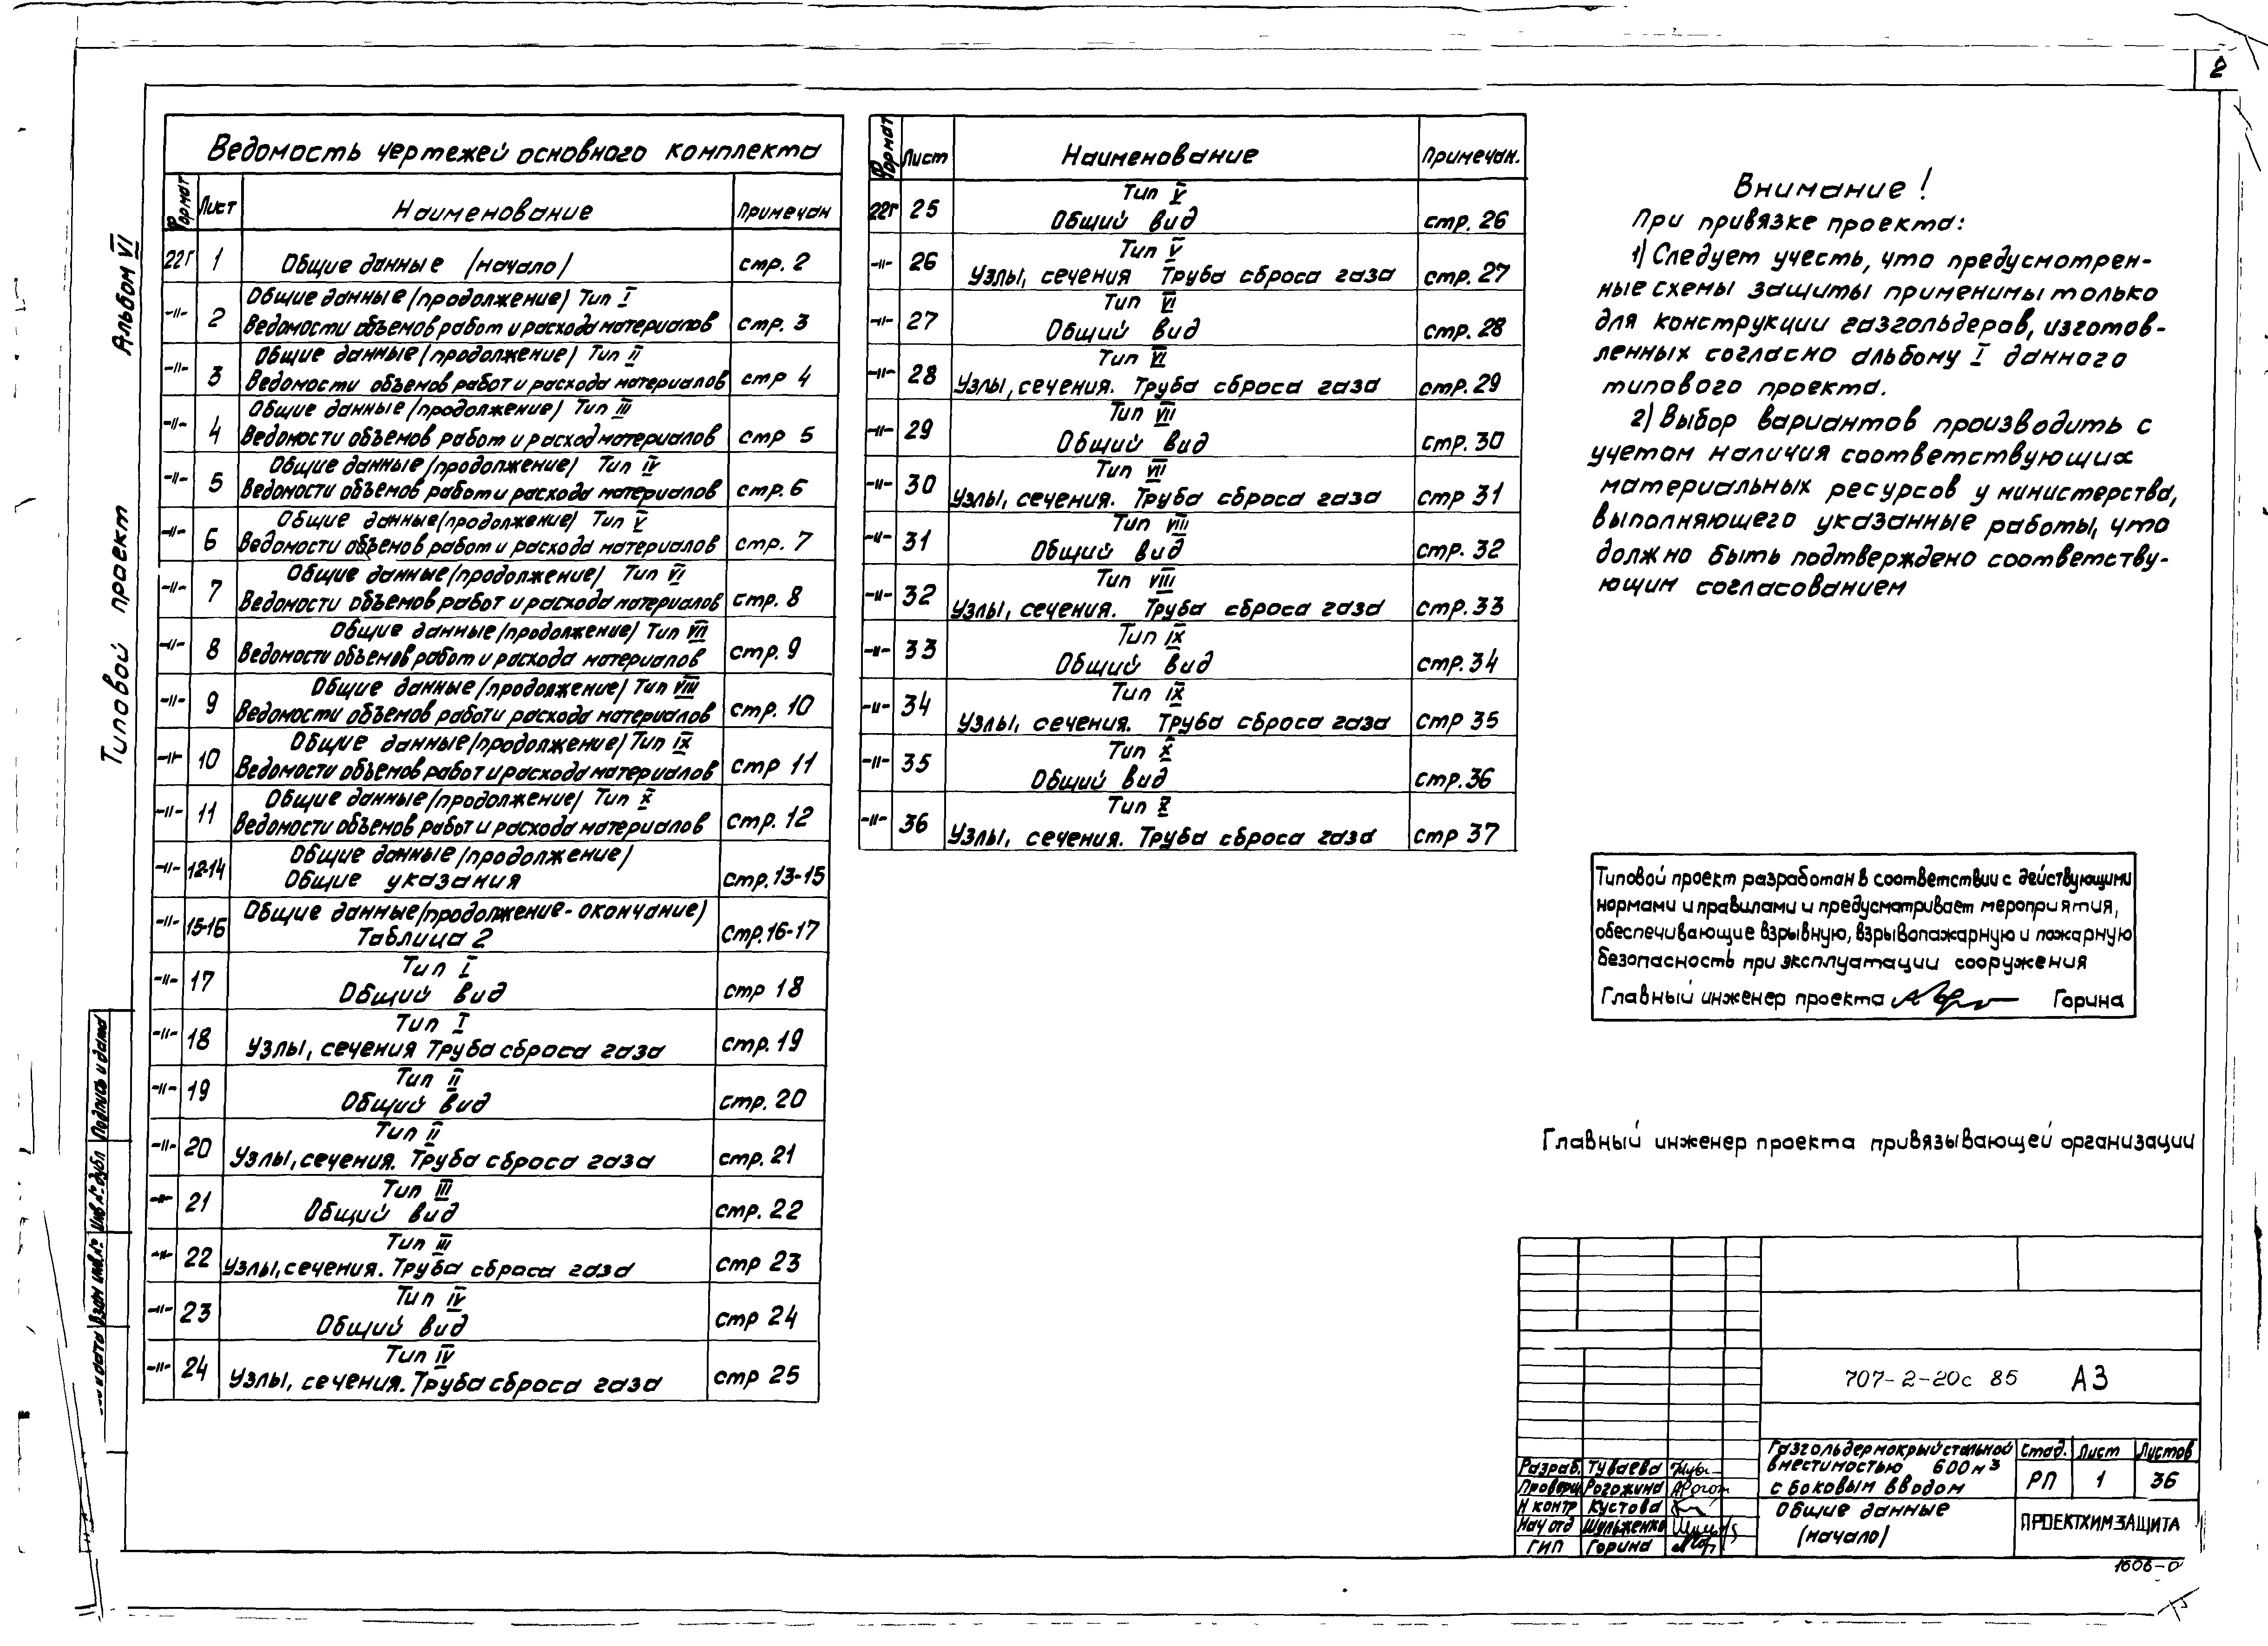 2
Альбом VI
Типовой проект
Ведомость чертежей основного комплекта
Формат Лист Наименование Примечан
22Г 1 Общие данные (начало) стр. 2
-"- 2 Общие данные (продолжение) Тип I
Ведомости объемов работ и расхода материалов стр. 3
-"- 3 Общие данные (продолжение) Тип II
Ведомости объемов работ и расхода материалов стр 4
-"- 4 Общие данные (продолжение) Тип III
Ведомости объемов работ и расход материалов стр 5
-"- 5 Общие данные (продолжение) Тип IV
Ведомости объемов работ и расхода материалов стр. 6
-"- 6 Общие данные (продолжение) Тип V
Ведомости объемов работ и расхода материалов стр. 7
-"- 7 Общие данные (продолжение) Тип VI
Ведомости объемов работ и расхода материалов стр. 8
-"- 8 Общие данные (продолжение) Тип VII
Ведомости объемов работ и расхода материалов стр. 9
-"- 9 Общие данные (продолжение) Тип VIII
Ведомости объемов работ и расхода материалов стр. 10
-"- 10 Общие данные (продолжение) Тип IX
Ведомости объемов работ и расхода материалов стр 11
-"- 11 Общие данные (продолжение) Тип X
Ведомости объемов работ и расхода материалов стр. 12
-"- 12-14 Общие данные (продолжение)
Общие указания стр. 13-15
-"- 15-16 Общие данные (продолжение-окончание)
Таблица 2 стр. 16-17
-"- 17 Тип I
Общий вид стр 18
-"- 18 Тип I
Узлы, сечения Труба сброса газа стр. 19
-"- 19 Тип II
Общий вид стр. 20
-"- 20 Тип II
Узлы, сечения. Труба сброса газа стр. 21
-"- 21 Тип III
Общий вид стр. 22
-"- 22 Тип III
Узлы, сечения. Труба сброса газа стр 23
-"- 23 Тип IV
Общий вид стр 24
-"- 24 Тип IV
Узлы, сечения. Труба сброса газа стр 25
Формат Лист Наименование Примечан.
22Г 25 Тип V
Общий вид стр. 26
-"- 26 Тип V
Узлы, сечения Труба сброса газа стр. 27
-"- 27 Тип VI
Общий вид стр. 28
-"- 28 Тип VI
Узлы, сечения. Труба сброса газа стр. 29
-"- 29 Тип VII
Общий вид стр. 30
-"- 30 Тип VII
Узлы, сечения. Труба сброса газа стр 31
-"- 31 Тип VIII
Общий вид стр. 32
-"- 32 Тип VIII
Узлы, сечения. Труба сброса газа стр. 33
-"- 33 Тип IX
Общий вид стр. 34
-"- 34 Тип IX
Узлы, сечения. Труба сброса газа стр 35
-"- 35 Тип X
Общий вид стр. 36
-"- 36 Тип X
Узлы, сечения. Труба сброса газа стр 37
Внимание!
При привязке проекта:
1) Следует учесть, что предусмотрен-
ные схемы защиты применимы только
для конструкции газгольдеров, изготов-
ленных согласно альбому I данного
типового проекта.
2) Выбор вариантов производить с
учетом наличия соответствующих
материальных ресурсов у министерства,
выполняющего указанные работы, что
должно быть подтверждено соответству-
ющим согласованием
Типовой проект разработан в соответствии с действующими
нормами и правилами и предусматривает мероприятия,
обеспечивающие взрывную, взрывопажарную и пожарную
безопасность при эксплуатации сооружения
Главный инженер проекта Горина
Главный инженер проекта привязывающей организации
707-2-20с 85 АЗ
Газгольдер мокрый стальной
вместимостью 600 м³
с боковым вводом
Стад. Лист Листов
РП 1 36
Общие данные
(начало)
ПРОЕКТХИМЗАЩИТА
Разраб. Туваева
Провери Рогожина
Н контр Кустова
Нач отд Шульженко
ГИП Горина
1606-0
Подпись и дата
Инв № дубл
Взам инв. №
и дата